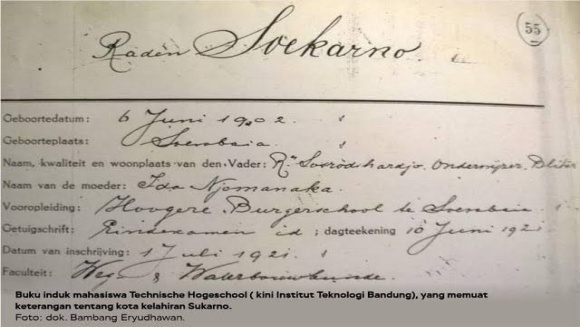 55
Raden Soekarno.
Geboortedatum: 6 Juni 1902.
Geboorteplaats: Soerabaia.
Naam, kwaliteit en woonplaats van den Vader: Rn Sosrodihardjo. Onderwijzer. Blitar
Naam van de moeder: Ida Njomanaka.
Vooropleiding: Hoogere Burgerschool te Soerabaia
Getuigschrift: Eindexamen id; dagteekening 10 Juni 1921
Datum van inschrijving: 1 Juli 1921.
Faculteit: Weg & Waterbouwkunde.
Buku induk mahasiswa Technische Hogeschool ( kini Institut Teknologi Bandung), yang memuat
keterangan tentang kota kelahiran Sukarno.
Foto: dok. Bambang Eryudhawan.